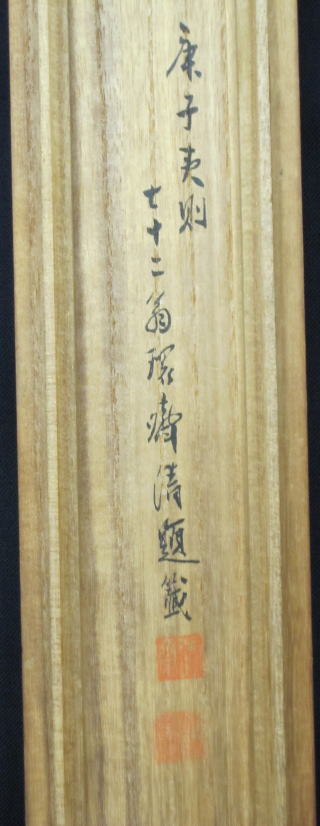 庚子夷則
七十二翁環疇清題籤